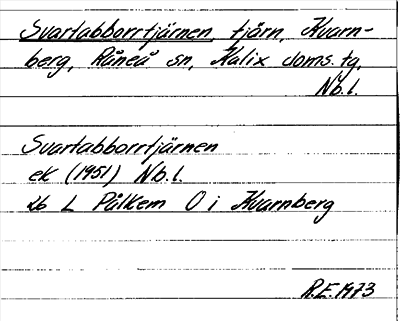 Svartabborrtjärnen, tjärn, Kvarn-
berg, Råneå sn, Kalix doms. tg,
Nb.l.
Svartabborrtjärnen
ek (1951) Nb.l.
26 L Pålkem O i Kvarnberg
R.E. 1973